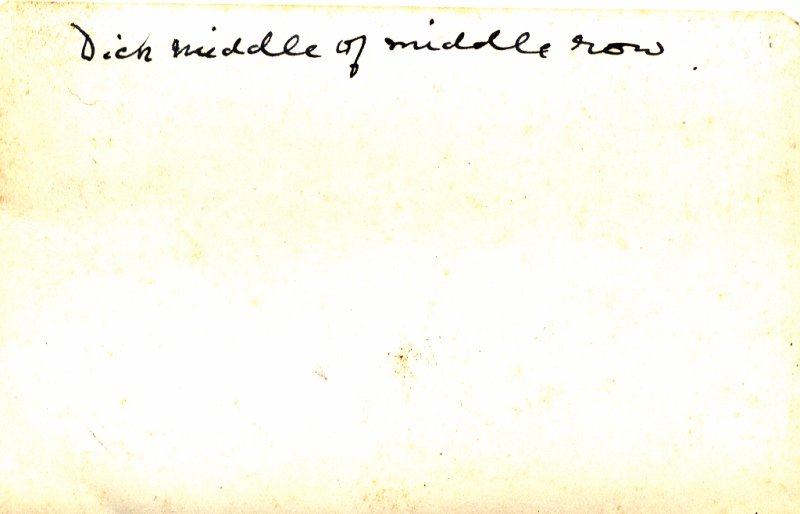 Dick middle of middle row.